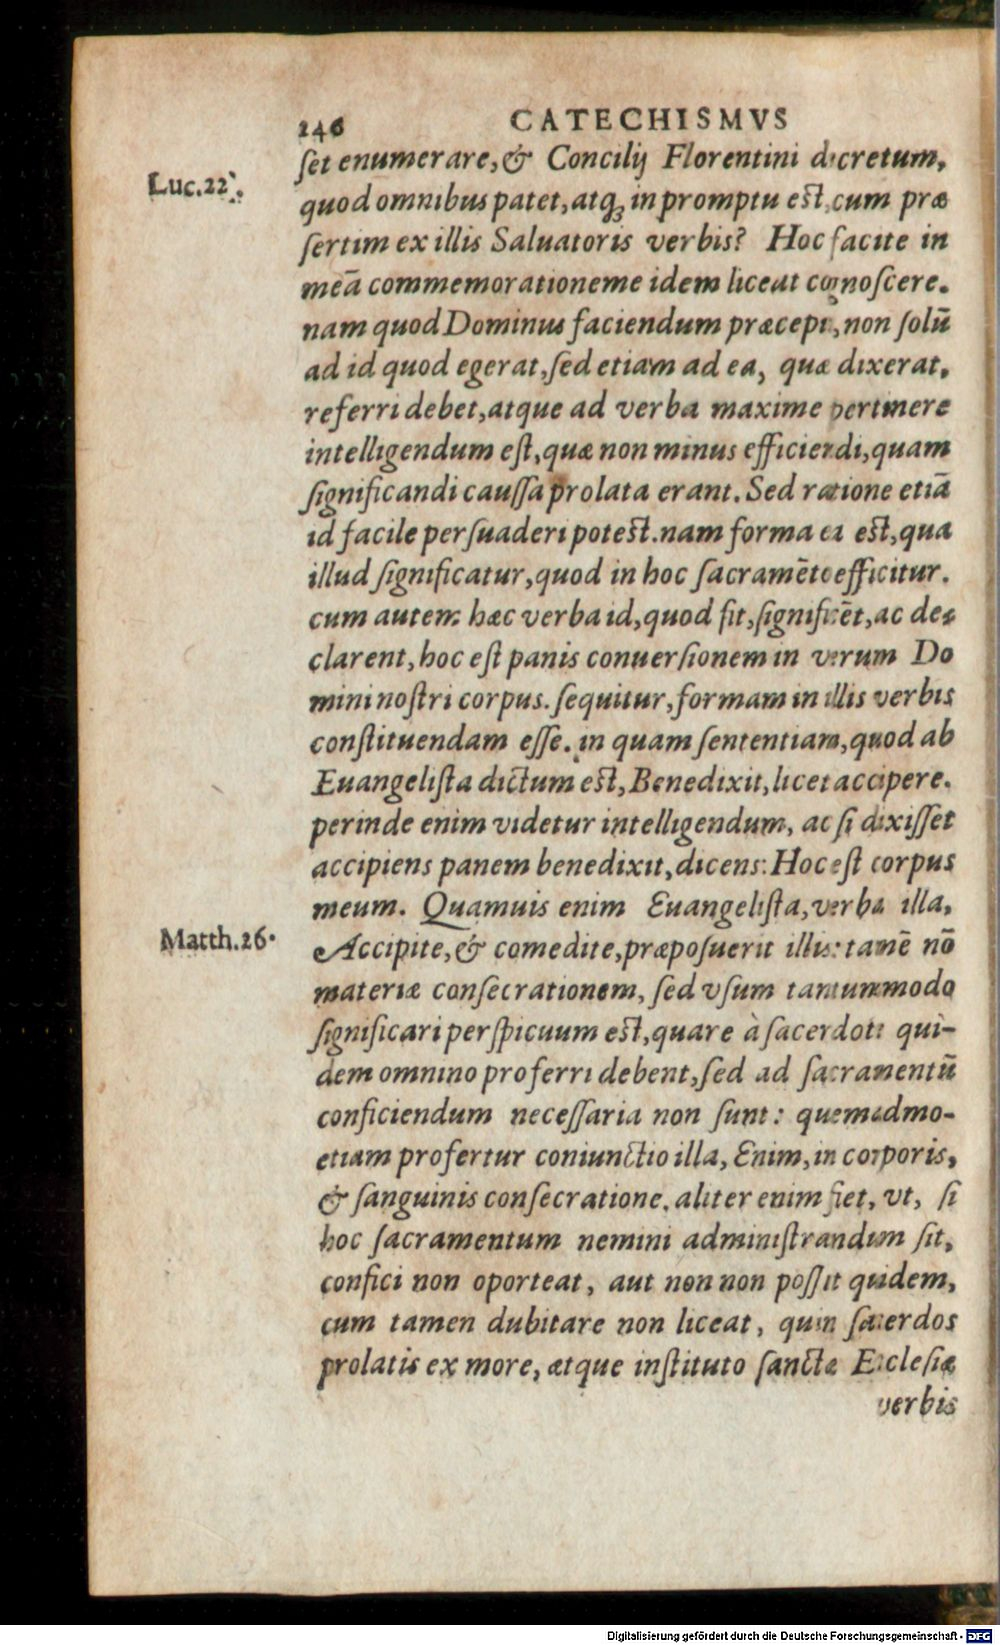 246 CATECHISMVS
ſet enumerare, & Concilij Florentini decretum,
Luc.22.
quod omnibus patet, atq; in promptu est, cum præ
ſertim ex illis Saluatoris verbis? Hoc facite in
meā commemorationeme idem liceat cognoſcere.
nam quod Dominus faciendum præcepit, non ſolū
ad id quod egerat, ſed etiam ad ea, quæ dixerat,
referri debet, atque ad verba maxime pertinere
intelligendum eſt, quæ non minus efficiendi, quam
ſignificandi cauſſa prolata erant. Sed ratione etiā
id facile perſuaderi potest. nam forma ea est, qua
illud ſignificatur, quod in hoc ſacramēto efficitur.
cum autem hæc verba id, quod fit, ſignificēt, ac de-
clarent, hoc eſt panis conuerſionem in verum Do
mini noſtri corpus. ſequitur, formam in illis verbis
conſtituendam eſſe. in quam ſententiam, quod ab
Euangeliſta dictum est, Benedixit, licet accipere.
perinde enim videtur intelligendum, ac ſi dixiſſet
accipiens panem benedixit, dicens: Hoc eſt corpus
meum. Quamuis enim Euangeliſta, verba illa,
Matth.26.
Accipite, & comedite, præpoſuerit illis: tamē nō
materiæ conſecrationem, ſed vſum tantummodo
ſignificari perſpicuum est, quare à ſacerdote qui-
dem omnino proferri debent, ſed ad ſacramentū
conficiendum neceſſaria non ſunt: quemadmo-
etiam profertur coniunctio illa, Enim, in corporis,
& ſanguinis conſecratione. aliter enim fiet, vt, ſi
hoc ſacramentum nemini adminiſtrandum ſit,
confici non oporteat, aut non non poſſit quidem,
cum tamen dubitare non liceat, quin ſacerdos
prolatis ex more, atque inſtituto ſanctæ Eccleſiæ
verbis
Digitalisierung gefördert durch die Deutsche Forschungsgemeinschaft - DFG